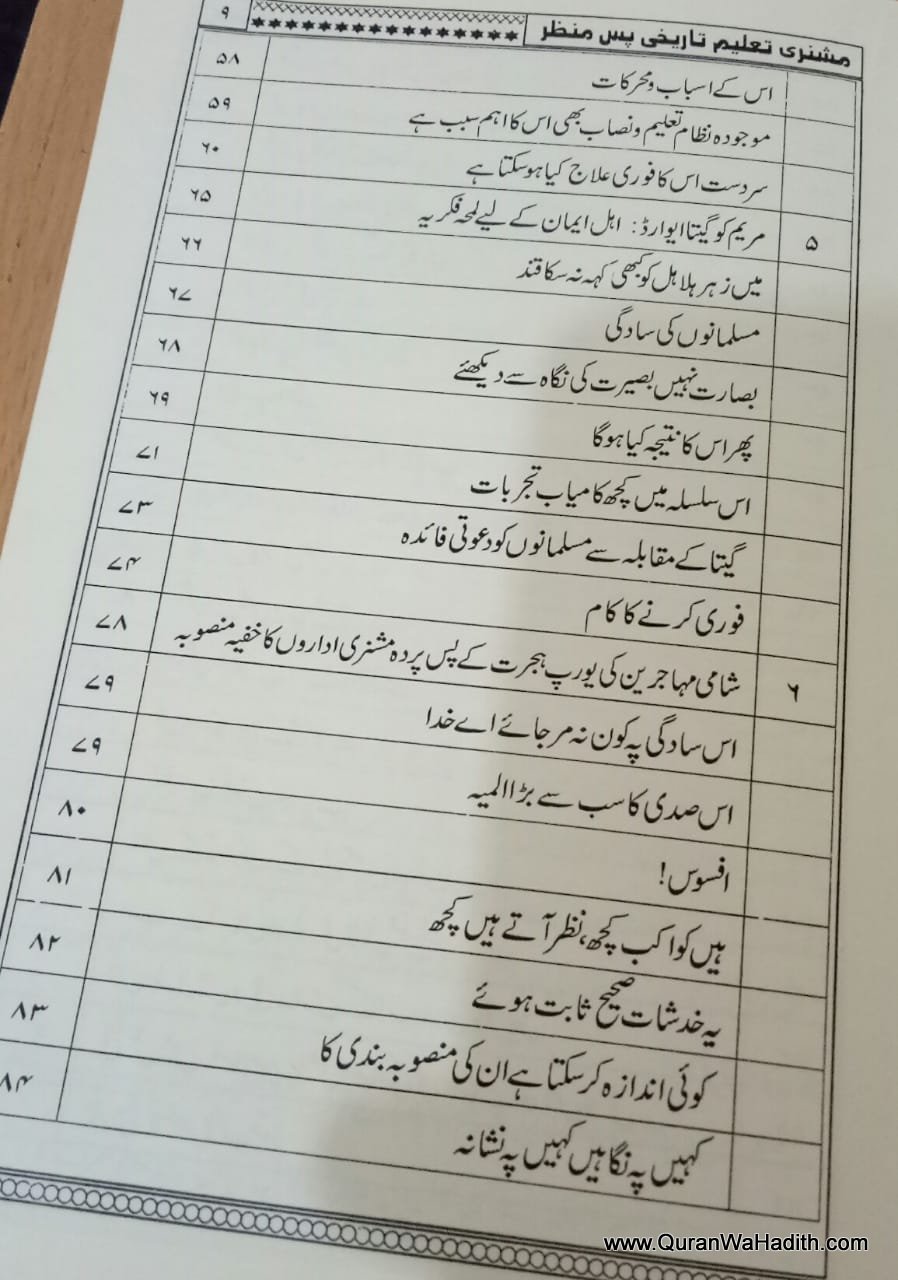 مشنری تعلیم تاریخی پس منظر ۹
اس کے اسباب ومحرکات ۵۸
موجودہ نظام تعلیم ونصاب بھی اس کا اہم سبب ہے ۵۹
سردست اس کا فوری علاج کیا ہوسکتا ہے ۶۰
۵ مریم کو گیتا ایوارڈ: اہل ایمان کے لیے لمحہ فکریہ ۶۵
میں زہر ہلاہل کو کبھی کہہ نہ سکا قند ۶۶
مسلمانوں کی سادگی ۶۷
بصارت نہیں بصیرت کی نگاہ سے دیکھئے ۶۸
پھر اس کا نتیجہ کیا ہوگا ۶۹
اس سلسلہ میں کچھ کامیاب تجربات ۷۱
گیتا کے مقابلہ سے مسلمانوں کو دعوتی فائدہ ۷۳
فوری کرنے کا کام ۷۴
۶ شامی مہاجرین کی یورپ ہجرت کے پس پردہ مشنری اداروں کا خفیہ منصوبہ ۷۸
اس سادگی پہ کون نہ مر جائے اے خدا ۷۹
اس صدی کا سب سے بڑا المیہ ۷۹
افسوس! ۸۰
ہیں کواکب کچھ، نظر آتے ہیں کچھ ۸۱
یہ خدشات صحیح ثابت ہوئے ۸۲
کوئی اندازہ کرسکتا ہے ان کی منصوبہ بندی کا ۸۳
کہیں پہ نگاہیں کہیں پہ نشانہ ۸۴
www.QuranWaHadith.com